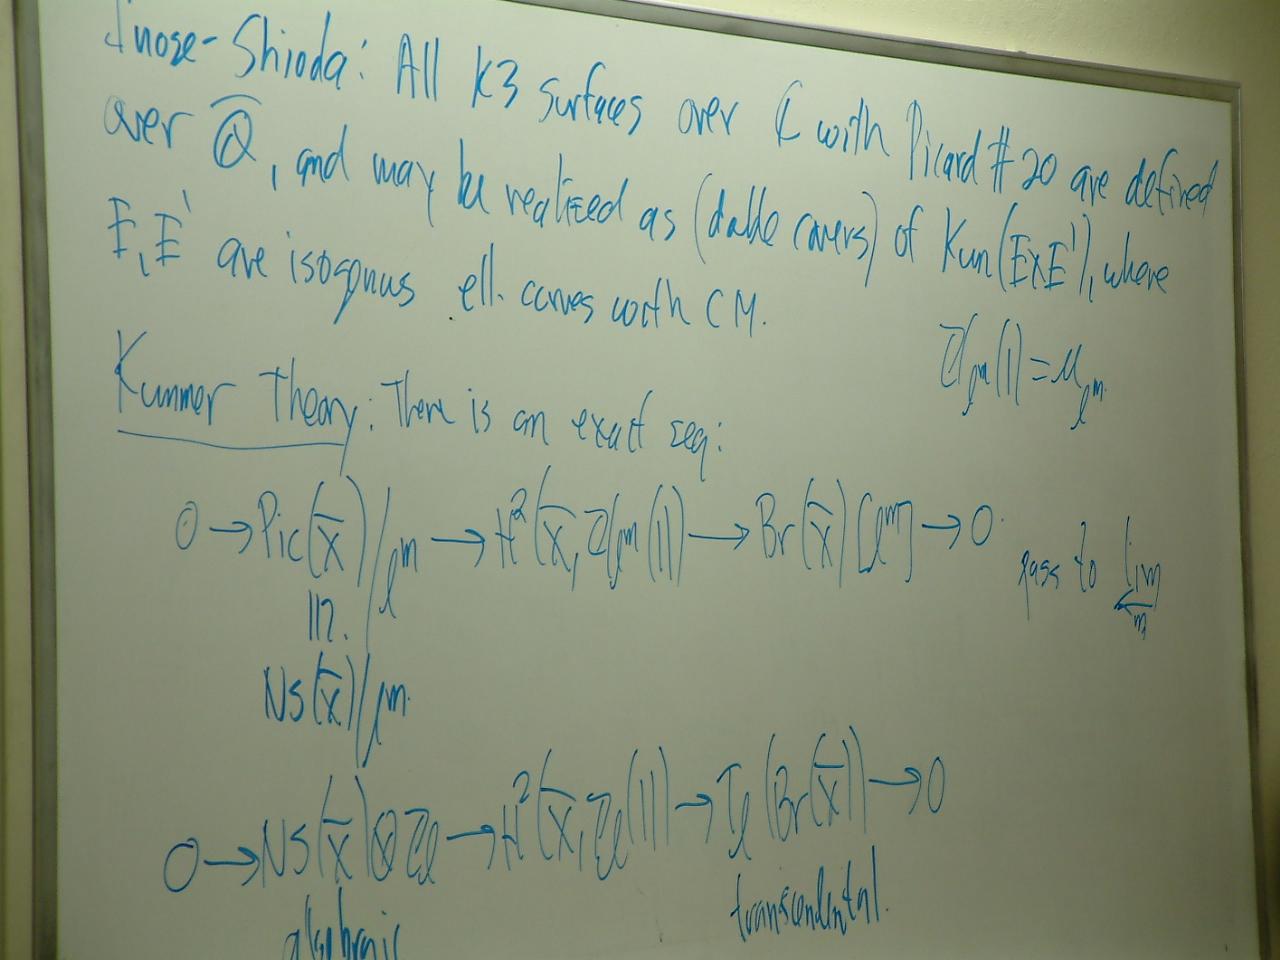 Inose-Shioda: All K3 surfaces over ℂ with Picard # 20 are defined
over Q̅, and may be realized as (double covers) of Kum(E×E'), where
E, E' are isogenous ell. curves with CM.
ℤ/ℓᵐ(1) = μ_ℓᵐ
Kummer Theory: There is an exact seq:
0 → Pic(X̅)/ℓᵐ → H²(X̅, ℤ/ℓᵐ(1)) → Br(X̅)[ℓᵐ] → 0
pass to lim ← m
NS(X̅)/ℓᵐ
0 → NS(X̅)⊗ℤ_ℓ → H²(X̅, ℤ_ℓ(1)) → T_ℓ(Br(X̅)) → 0
algebraic transcendental.